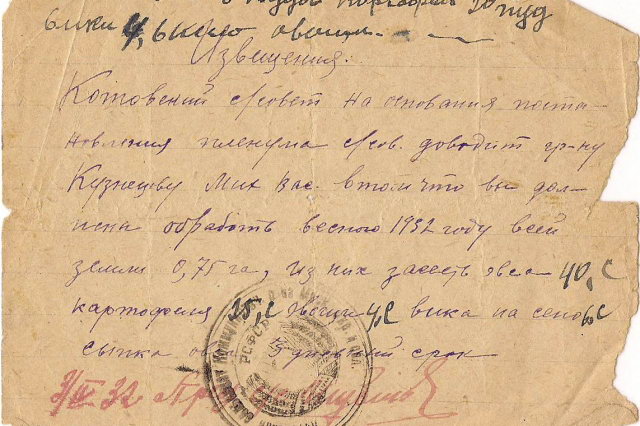 пудов картофеля 20 пуд
вики 4,
Извещения.
Котовский с/совет на основания поста-
новления пленума с/сов. доводит гр-ну
Кузнецву Мих Вас. в том что вы дол-
жна обработь весною 1932 году всей
земли 0,75 га, из них засеть овса 40,с
картофеля 15,с овощи 4,с вика на сено 6,с
сыпка 5 дневний срок
3/IV 32
РСФСР